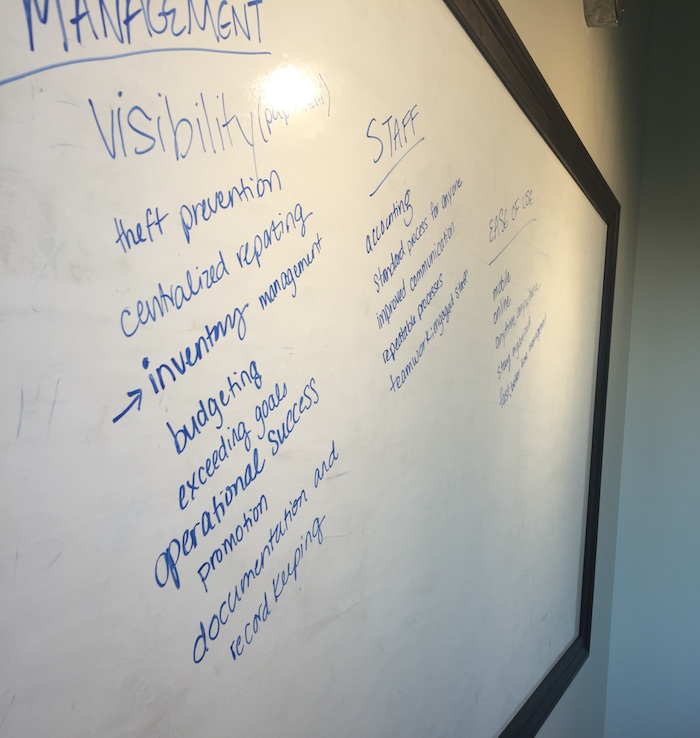 MANAGEMENT
Visibility
theft prevention
centralized reporting
→ inventory management
budgeting
exceeding goals
operational success
promotion
documentation and
record keeping
STAFF
accounting
standard process for anyone
improved communication
repeatable processes
teamwork: engaged staff
EASE OF USE
mobile
online
anytime, anywhere
stay organized
fast,